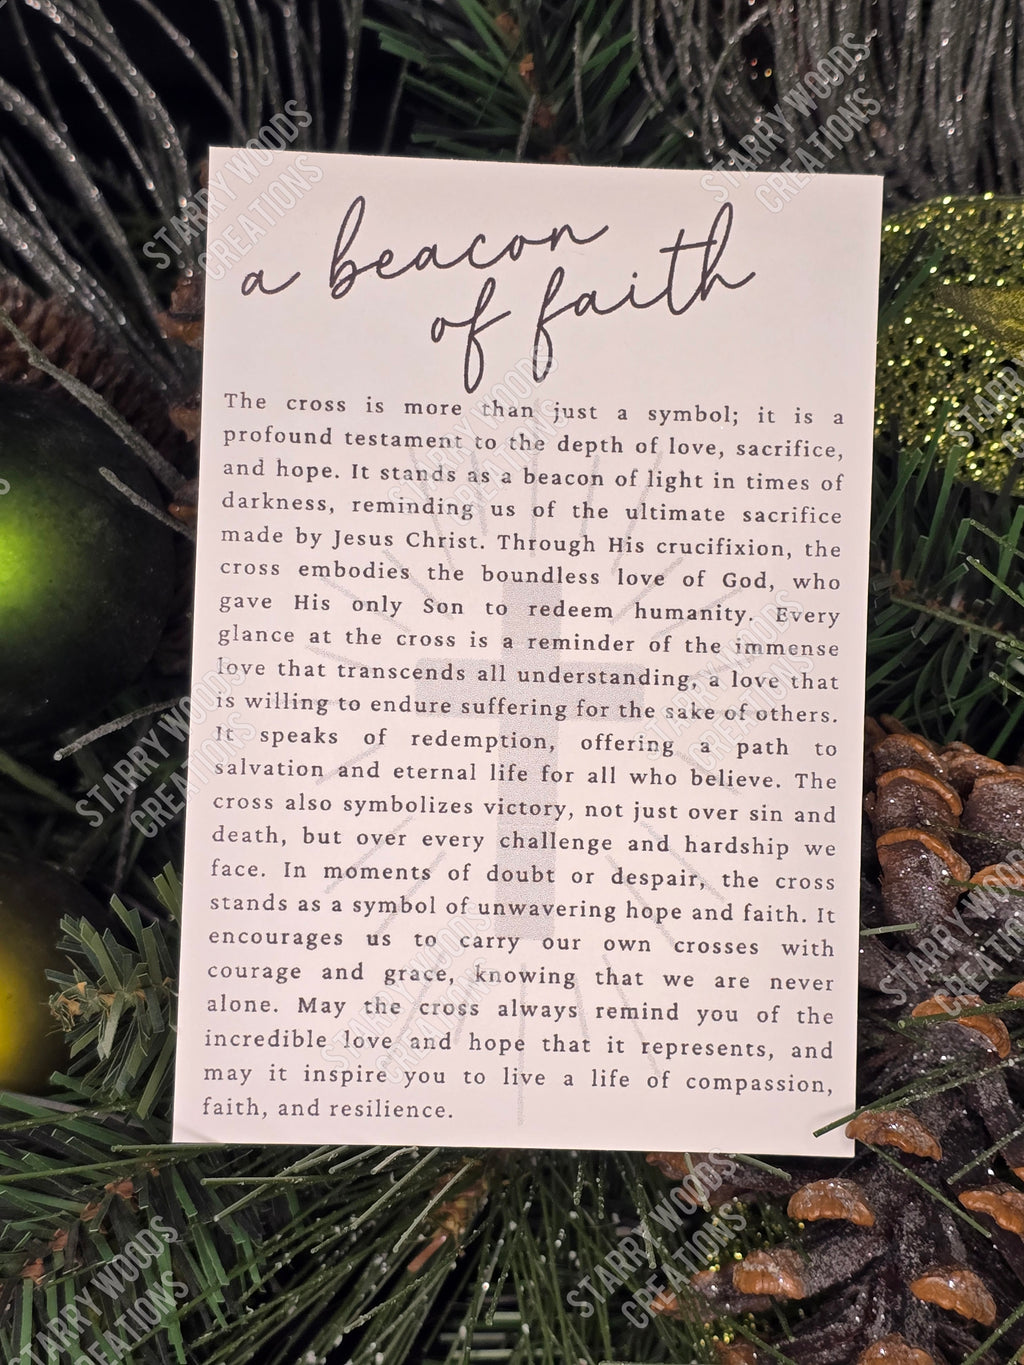 a beacon
of faith
The cross is more than just a symbol; it is a
profound testament to the depth of love, sacrifice,
and hope. It stands as a beacon of light in times of
darkness, reminding us of the ultimate sacrifice
made by Jesus Christ. Through His crucifixion, the
cross embodies the boundless love of God, who
gave His only Son to redeem humanity. Every
glance at the cross is a reminder of the immense
love that transcends all understanding, a love that
is willing to endure suffering for the sake of others.
It speaks of redemption, offering a path to
salvation and eternal life for all who believe. The
cross also symbolizes victory, not just over sin and
death, but over every challenge and hardship we
face. In moments of doubt or despair, the cross
stands as a symbol of unwavering hope and faith. It
encourages us to carry our own crosses with
courage and grace, knowing that we are never
alone. May the cross always remind you of the
incredible love and hope that it represents, and
may it inspire you to live a life of compassion,
faith, and resilience.
STARRY WOODS
CREATIONS
STARRY WOODS
CREATIONS
STARRY WOODS
CREATIONS
STARRY WOODS
CREATIONS
STARRY WOODS
CREATIONS
STARRY WOODS
CREATIONS
STARRY WOODS
CREATIONS
STARRY WOODS
CREATIONS
STARRY WOODS
CREATIONS